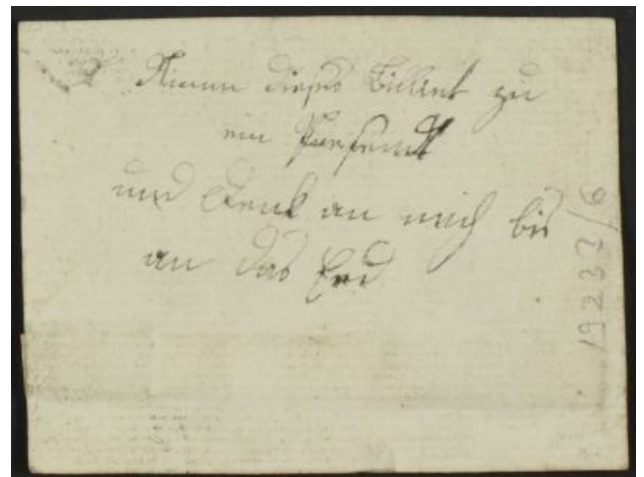 Nimm dieses Billiet zu
ein Presendt
und denk an mich bis
an das End
19232/6